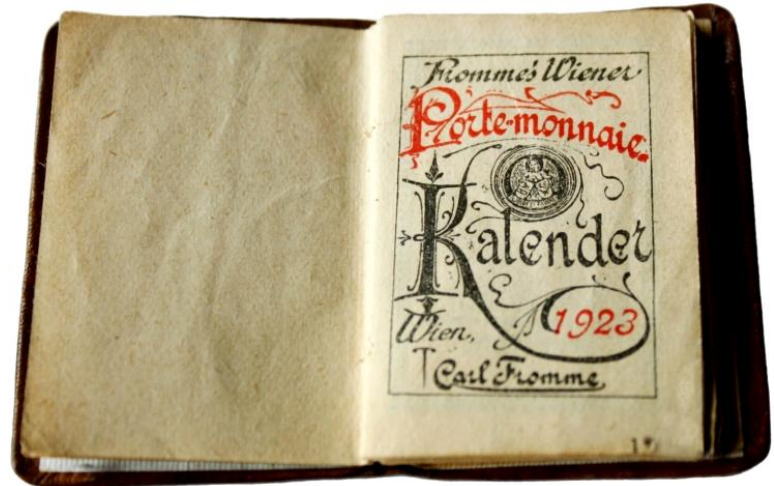 Fromme's Wiener
Porte-monnaie-
Kalender
1923
Wien,
Carl Fromme